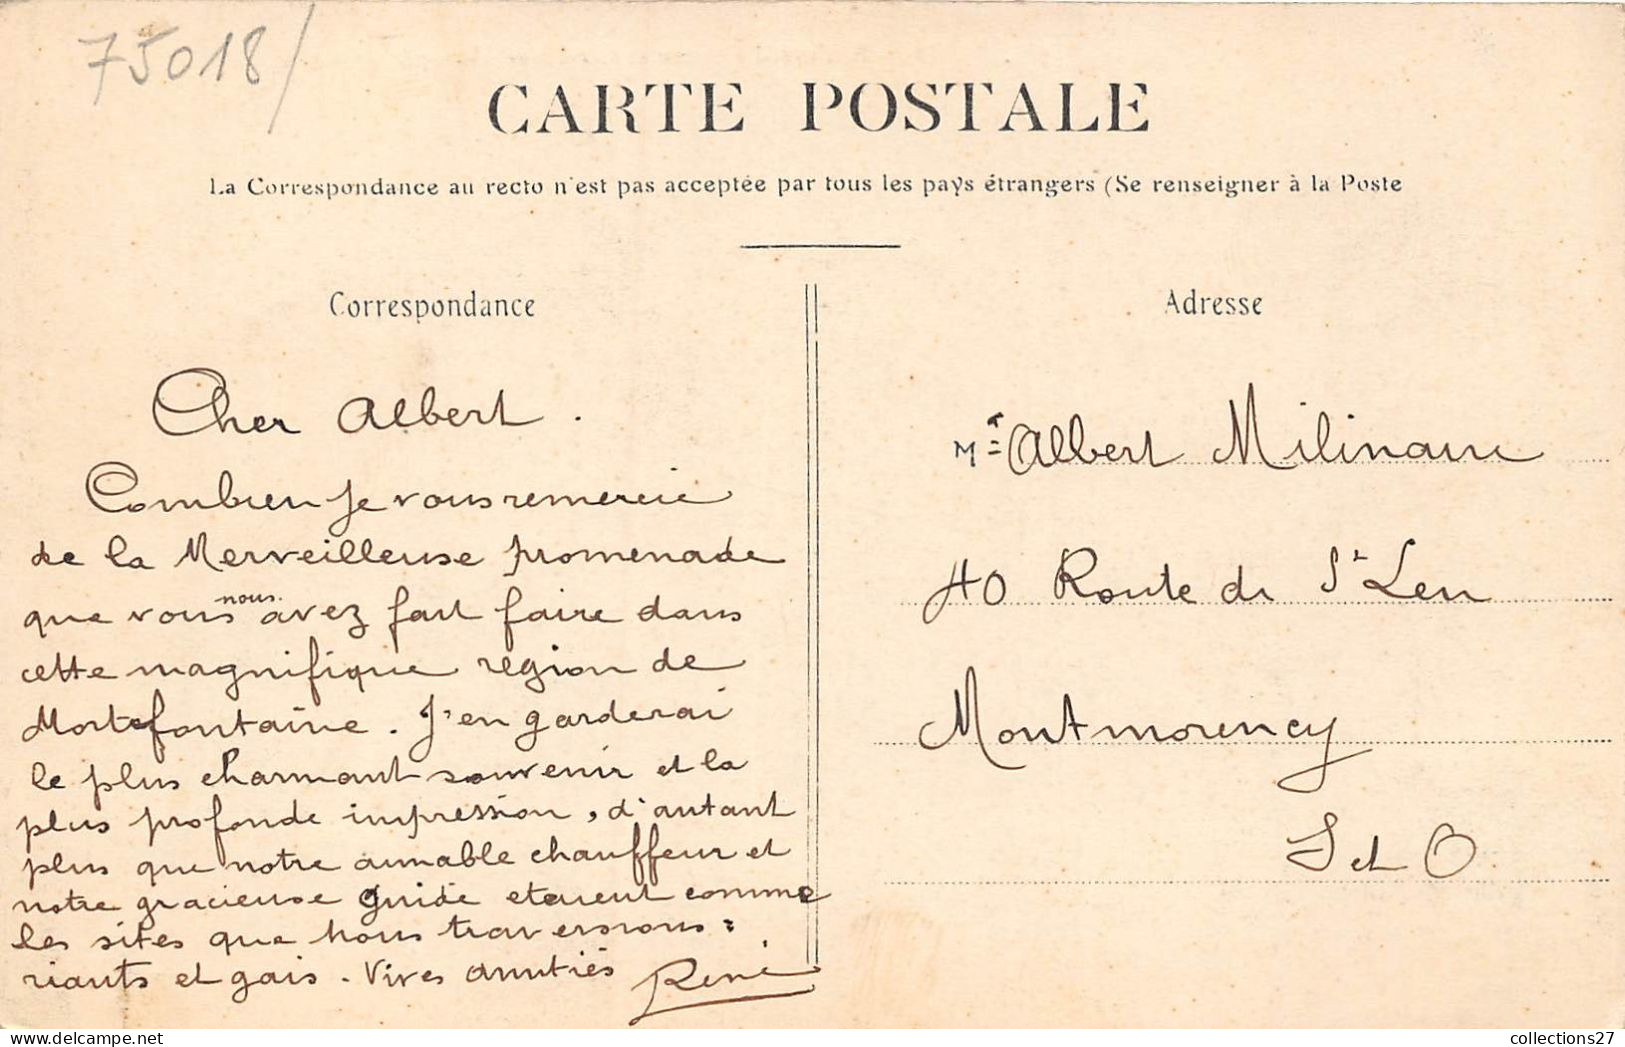 75018/
CARTE POSTALE
La Correspondance au recto n'est pas acceptée par tous les pays étrangers (Se renseigner à la Poste
Correspondance
Cher Albert.
Combien je vous remercie
de la Merveilleuse promenade
que vous nous avez fait faire dans
cette magnifique region de
Mortefontaine. J'en garderai
le plus charmant souvenir et la
plus profonde impression, d'autant
plus que notre aimable chauffeur et
notre gracieuse Guide etaient comme
les sites que nous traversions :
riants et gais. Vives amitiés René
Adresse
Mr Albert Milinaire
40 Route de St Leu
Montmorency
S et O
collections27